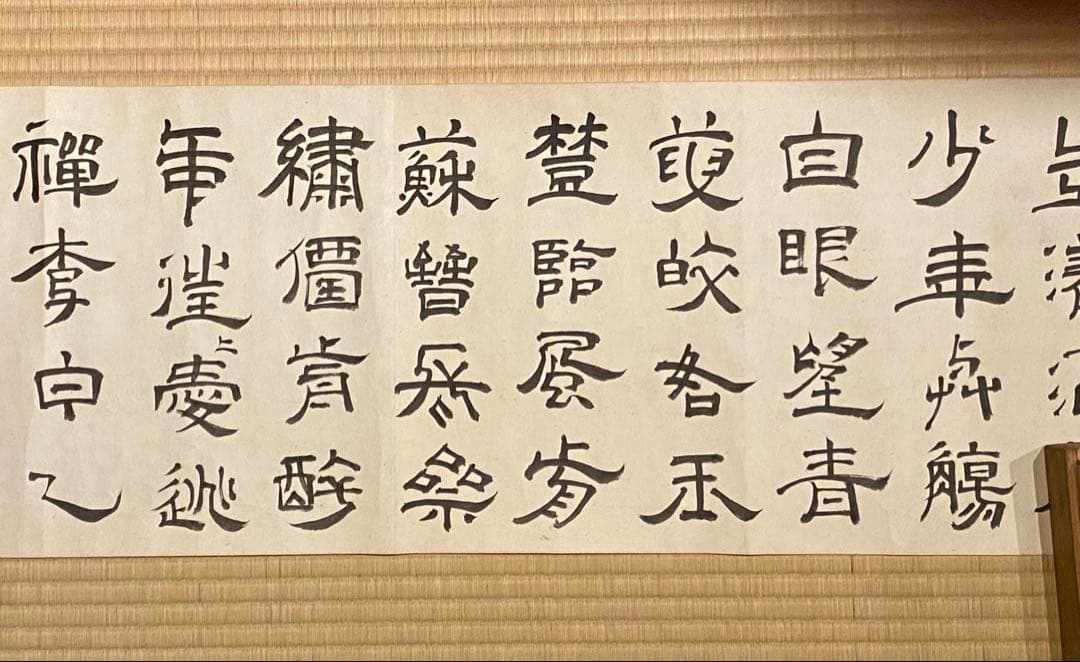 少年舉觴
白眼望青
天皎如玉
樹臨風前
蘇晉長齋
繡佛前醉
中往〻愛逃
禪李白一